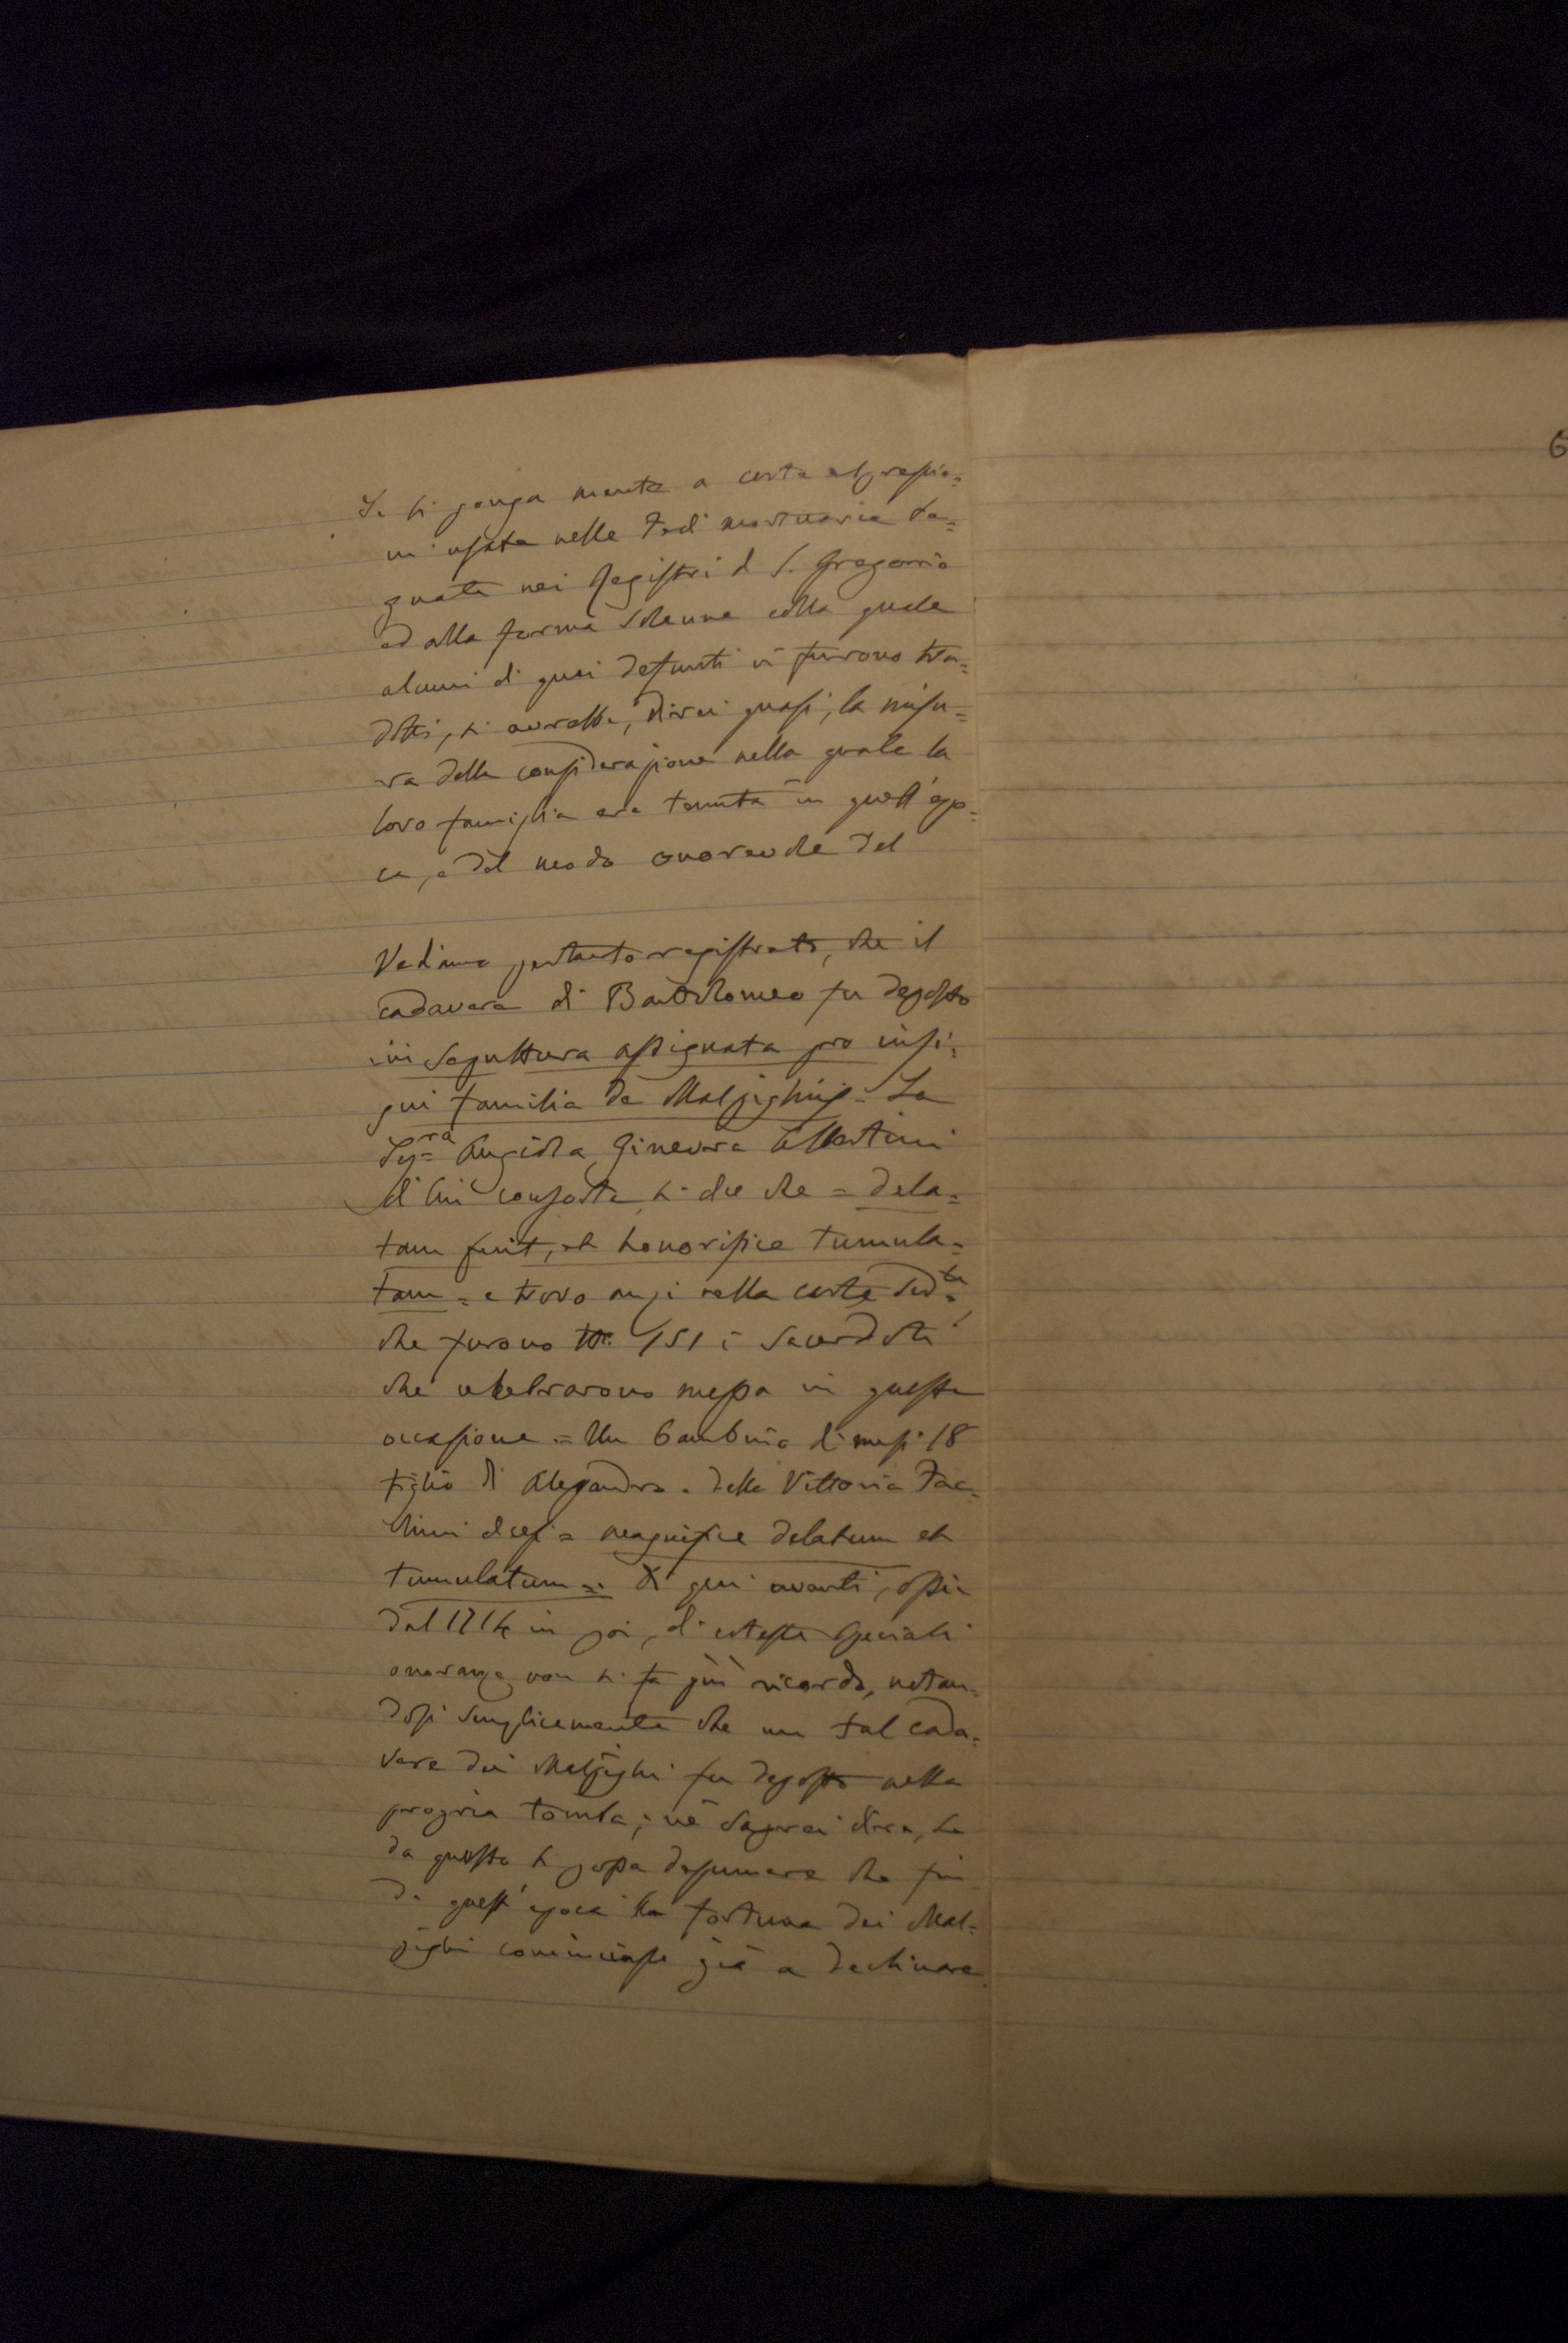 Se si ponga mente a certe espressio=
ni usate nelle Fedi mortuarie se=
gnate nei Registri d S. Gregorio
ed alla forma solenne colla quale
alcuni di quei defunti vi furono tra=
dotti, si avrebbe, direi quasi, la misu=
ra della considerazione nella quale la
loro famiglia era tenuta in quell'epo=
ca, e del modo onorevole del
Vediamo pertanto registrato, che il
cadavere di Bartolomeo fu deposto
in sepultura assignata pro insi=
gni familia de Malpighiis. La
Sig=ra Angiola Ginevra Albertini
di lui consorte si dice che = dela=
tam fuit, et honorifice tumula=
tam = e trovo anzi nella carte sud=te,
che furono 151 i Sacerdoti
che celebrarono messa in questa
occasione = Un bambino di mesi 18
figlio di Alessandro e della Vittoria Fac=
chini dicesi = magnifice delatum et
tumulatum =. Di qui avanti, ossia
dal 1714 in poi, di coteste speciali
onoranze non si fa più ricordo, notan=
dosi semplicemente che un tal cada=
vere dei Malpighi fu deposto nella
propria tomba; nè saprei dire, se
da questo si possa desumere che fin
da quest'epoca la fortuna dei Mal=
pighi cominciasse già a declinare.
6